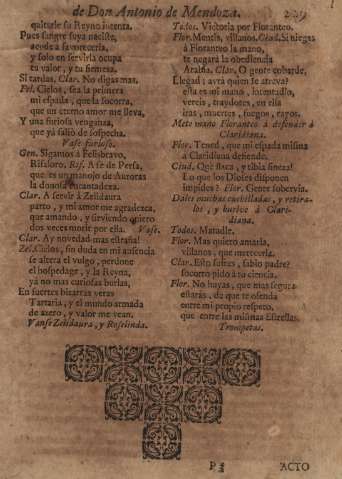 de Don Antonio de Mendoza. 229
quitarle su Reyno intenta.
Pues sangre suya naciste,
acude a favorecerla,
y solo en servirla ocupa
tu valor, y tu fineza.
Si tardas. Clar. No digas mas.
Fel. Cielos, sea la primera
mi espada, que la socorra,
que un eterno amor me lleva,
Y una furiosa venganza,
que yà saliò de sospecha.
Vase furioso.
Gen. Sigamos à Felisbravo,
Rifaloro. Rif. A fe de Persa,
que es un manojo de Auroras
la donosa encantadora.
Clar. A servir à Zelidaura
parto, y mi amor me agradezca,
que amando, y sirviendo quiero
dos veces morir por ella. Vase.
Clar. Ay novedad mas estraña!
Zel. Cielos, sin duda en mi ausencia
se altera el vulgo, perdone
el hospedage, y la Reyna,
yà no mas curiosas burlas,
En fuertes bizarras veras
Tartaria, y el mundo armada
de azero, y valor me vean.
Vanse Zelidaura, y Roselinda.
Todos. Victoria por Floranteo.
Flor. Mentis, villanos. Ciud. Si niegas
à Floranteo la mano,
te negarà la obediencia
Arabia. Clar. O gente cobarde,
Llegad; avrà quien se atreva?
esta es mi mano, intentadlo,
vereis, traydores, en ella
iras, muertes, fuegos, rayos.
Mete mano Floranteo à defender à
Claridiana.
Flor. Tened, que mi espada misma
à Claridiana defiende.
Ciud. O gè flaca, y tibia fineza!
Lo que los Dioses disponen
impides? Flor. Gente sobervia.
Dales muchas cuchilladas, y retira-
los, y buelve à Clari-
diana.
Todos. Matadle.
Flor. Mas quiero amarla,
villanos, que merecerla.
Clar. Esto sufres, sabio padre?
socorro pido à tu ciencia.
Flor. No huyas, que mas segura
estaràs, de que te ofenda
en mi propio respeto,
que entre las mismas Estrellas.
Trompetas.
P3
ACTO